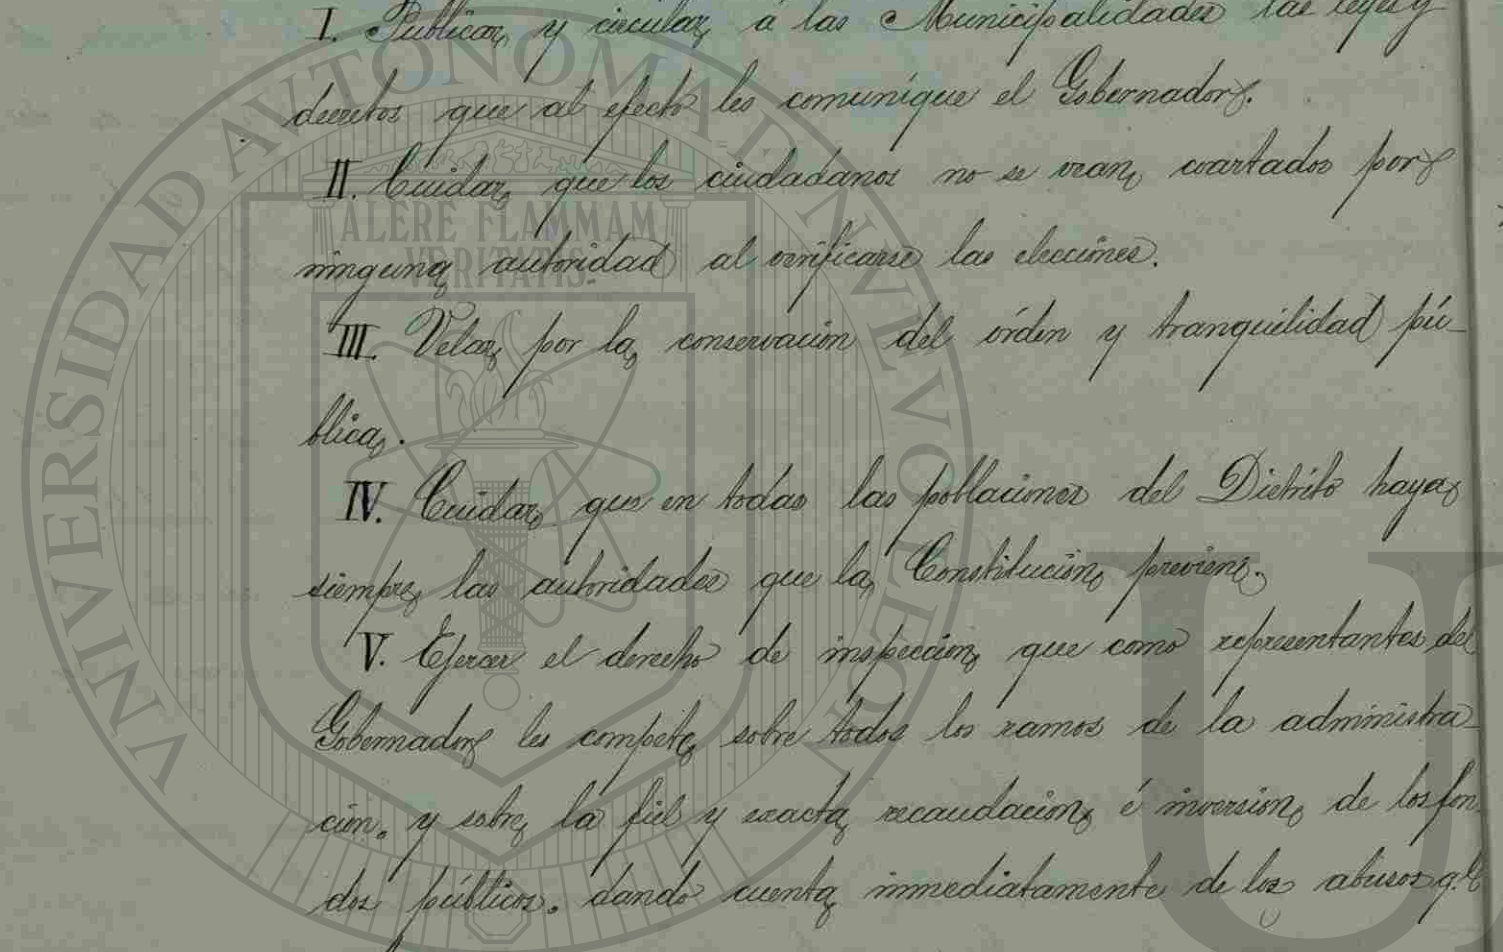 I. Publicar y circular á las Municipalidades las leyes y
decretos que al efecto les comunique el Gobernador.
II. Cuidar que los ciudadanos no se vean coartados por
ninguna autoridad al verificarse las elecciones.
III. Velar por la conservación del órden y tranquilidad pú-
blica.
IV. Cuidar que en todas las poblaciones del Distrito haya
siempre las autoridades que la Constitución previene.
V. Ejercer el derecho de inspección que como representantes del
Gobernador les compete sobre todos los ramos de la administra-
ción. y sobre la fiel y exacta recaudación é inversion de los fon-
dos públicos. dando cuenta inmediatamente de los abusos q.e
UNIVERSIDAD AUTONOMA DE NUEVO LEON
ALERE FLAMMAM
VERITATIS
U